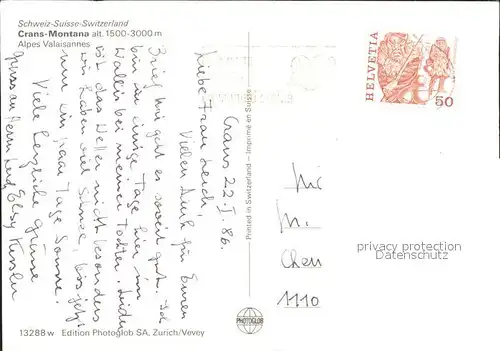 Schweiz-Suisse-Switzerland
Crans-Montana alt. 1500-3000 m
Alpes Valaisannes
HELVETIA
50
Crans 22.I 86.
Liebe Frau
Vielen Dank für Euren
Brief. Mir geht es soweit gut. Ich
bin für einige Tage hier im
Wallis bei meiner Tochter. Leider
ist das Wetter nicht besonders
wir haben viel Schnee, bis jetzt
nur ein paar Tage Sonne.
Viele herzliche Grüsse
Gruss an Herrn Elsy
Printed in Switzerland – Imprimé en Suisse
1110
privacy protection
DatenSchutz
PHOTOGLOB
13288 w Edition Photoglob SA, Zurich/Vevey